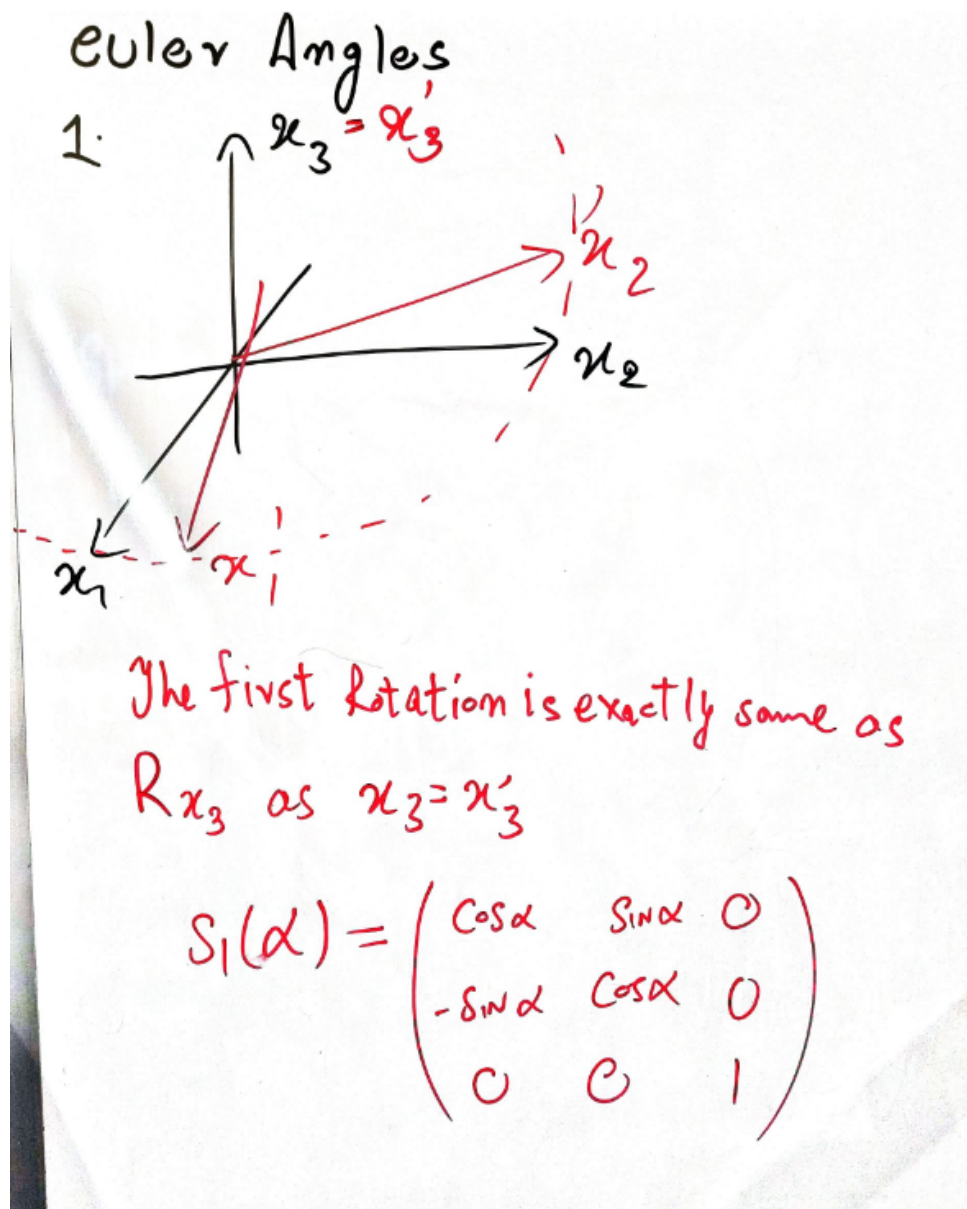 euler Angles
1.
x₃ = x₃'
x₂'
x₂
x₁
x₁'
The first Rotation is exactly same as
Rx₃ as x₃ = x₃'
S₁(α) = ( cosα sinα 0
-sinα cosα 0
0 0 1 )